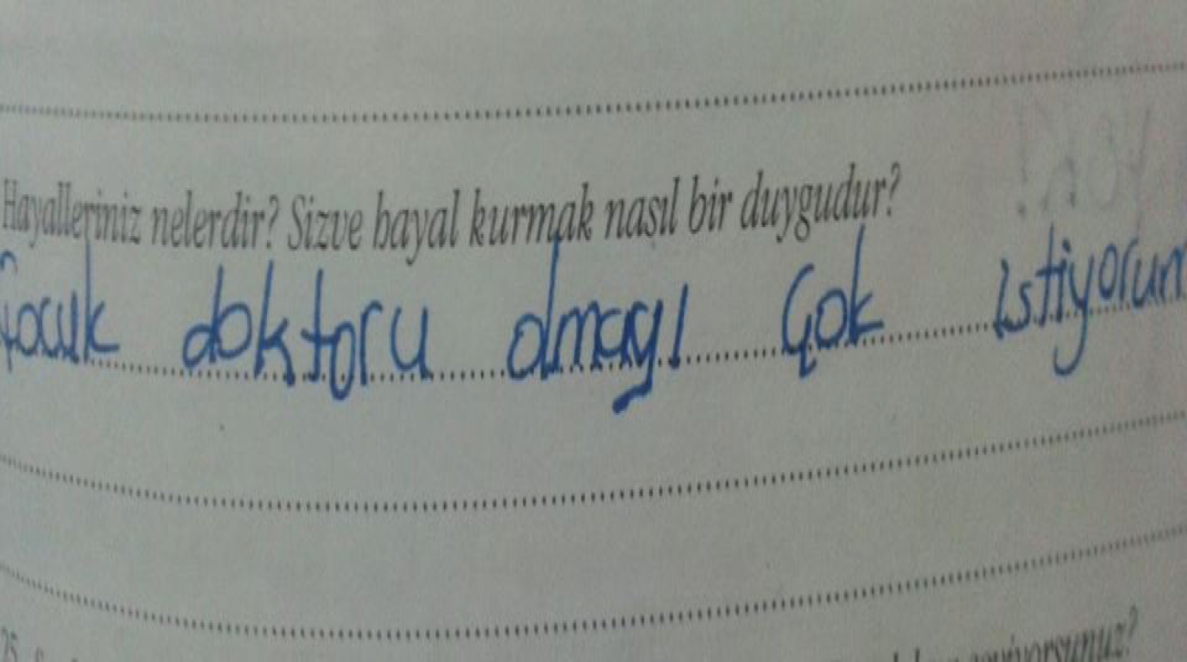 Hayalleriniz nelerdir? Sizve hayal kurmak nasıl bir duygudur?
Çocuk doktoru olmayı çok istiyorum